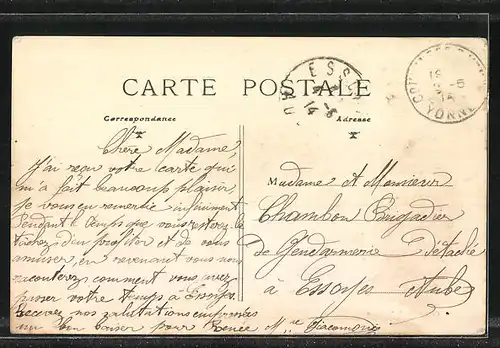 CARTE POSTALE
Correspondance
Adresse
ESS
YONNE
Chère Madame,
J'ai reçu votre carte qui
m'a fait beaucoup plaisir
je vous en remercie infiniment
Pendant le temps que vous resterez
tâchez d'en profiter et de vous
amuser, en revenant vous nous
raconterez comment vous avez
passer votre temps à Essoyes
Recevez nos salutations empressées
un bon baiser pour Renée Mme Giacomoni
Madame et Monsieur
Chambon Brigadier
De Gendarmerie Détaché
à Essoyes Aube